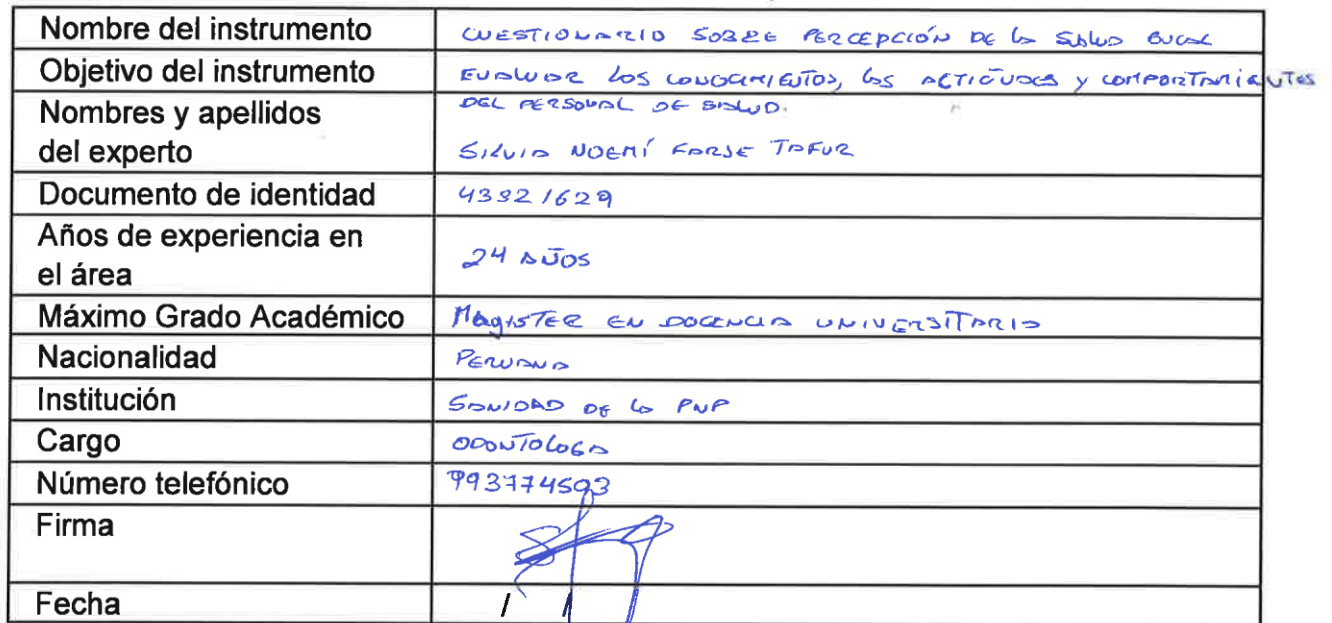 Nombre del instrumento CUESTIONARIO SOBRE PERCEPCIÓN DE LA SALUD BUCAL
Objetivo del instrumento EVALUAR LOS CONOCIMIENTOS, LAS ACTITUDES Y COMPORTAMIENTOS
DEL PERSONAL DE SALUD.
Nombres y apellidos
del experto SILVIA NOEMÍ FARJE TAFUR
Documento de identidad 43321629
Años de experiencia en
el área 24 AÑOS
Máximo Grado Académico MAGISTER EN DOCENCIA UNIVERSITARIA
Nacionalidad PERUANA
Institución SANIDAD DE LA PNP
Cargo ODONTOLOGA
Número telefónico 993774593
Firma
Fecha / /